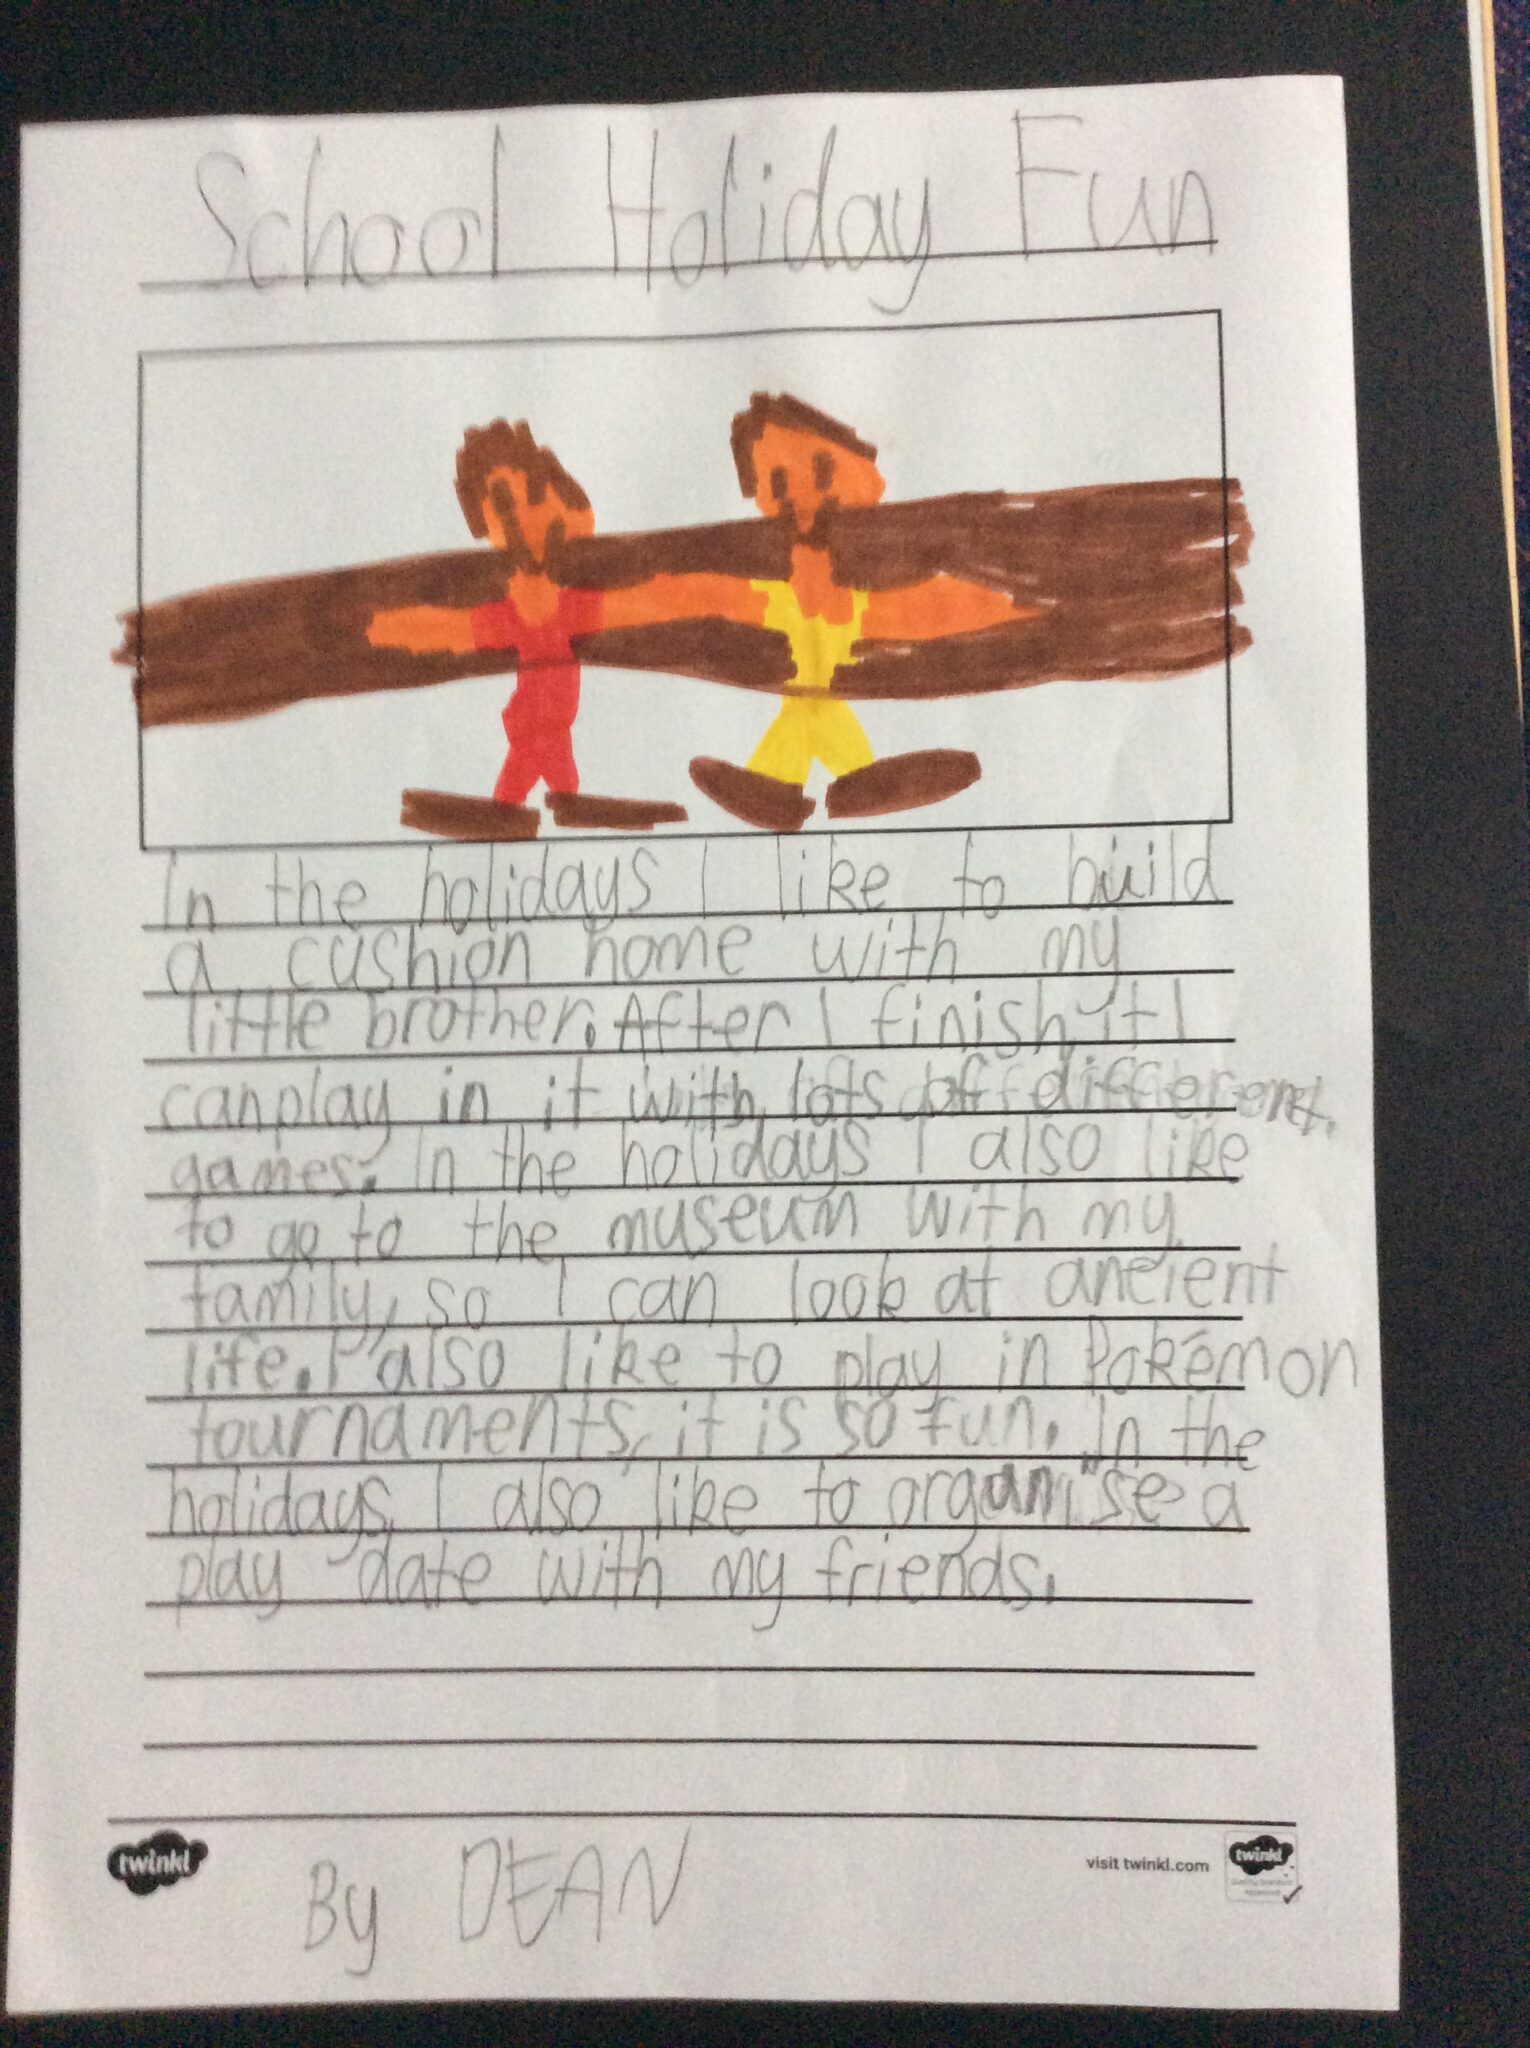 School Holiday Fun
In the holidays I like to build
a cushion home with my
little brother. After I finish, it I
can play in it with lots of different
games. In the holidays I also like
to go to the museum with my
family, so I can look at ancient
life. I also like to play in Pokémon
tournaments, it is so fun. In the
holidays, I also like to organise a
play date with my friends.
twinkl
visit twinkl.com
twinkl
By DEAN